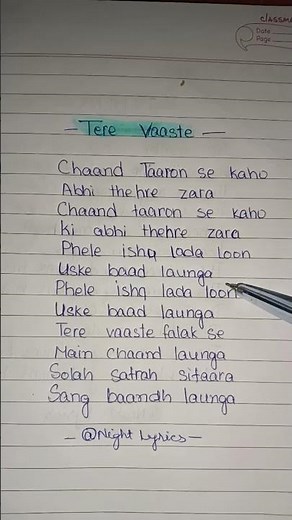 classma
Date
Page
- Tere Vaaste -
Chaand Taaron se kaho
Abhi thehre zara
Chaand taaron se kaho
ki abhi thehre zara
Phele ishq lada loon
Uske baad launga
Phele ishq lada loon
Uske baad launga
Tere vaaste falak se
Main chaand launga
Solah satrah sitaara
Sang baandh launga
- @Night Lyrics -